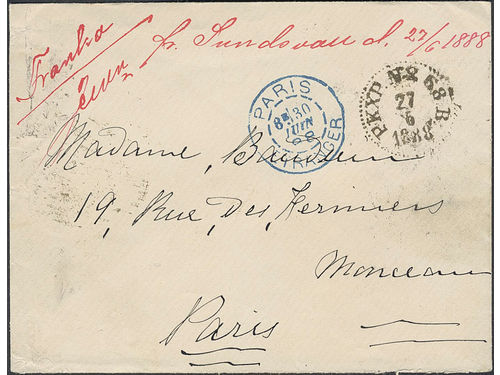 Franko
fr. Sundsvall d. 27/6 1888
PARIS
8E 30
JUIN
88
ETRANGER
PKXP No 2 68 B.
27
6
1888
Madame,
19, Rue, Des, Fermiers
Monceau
Paris